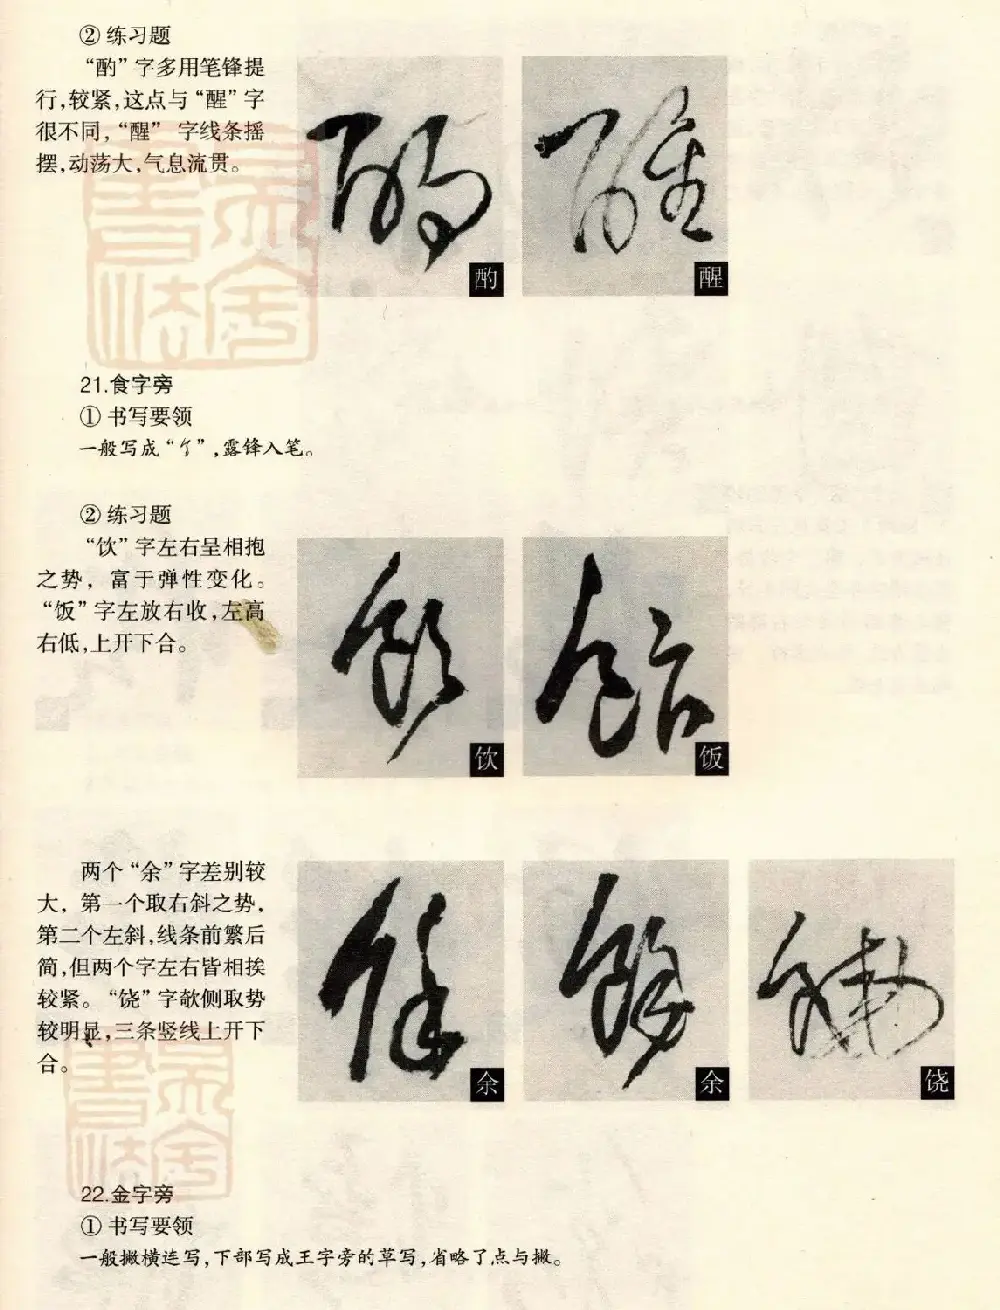 ② 练习题
“酌”字多用笔锋提
行,较紧,这点与“醒”字
很不同,“醒”字线条摇
摆,动荡大,气息流贯。
酌
醒
21.食字旁
① 书写要领
一般写成“饣”,露锋入笔。
② 练习题
“饮”字左右呈相抱
之势，富于弹性变化。
“饭”字左放右收,左高
右低,上开下合。
饮
饭
两个“余”字差别较
大，第一个取右斜之势，
第二个左斜,线条前繁后
简,但两个字左右皆相挨
较紧。“饶”字欹侧取势
较明显,三条竖线上开下
合。
余
余
饶
22.金字旁
① 书写要领
一般撇横连写,下部写成王字旁的草写,省略了点与撇。